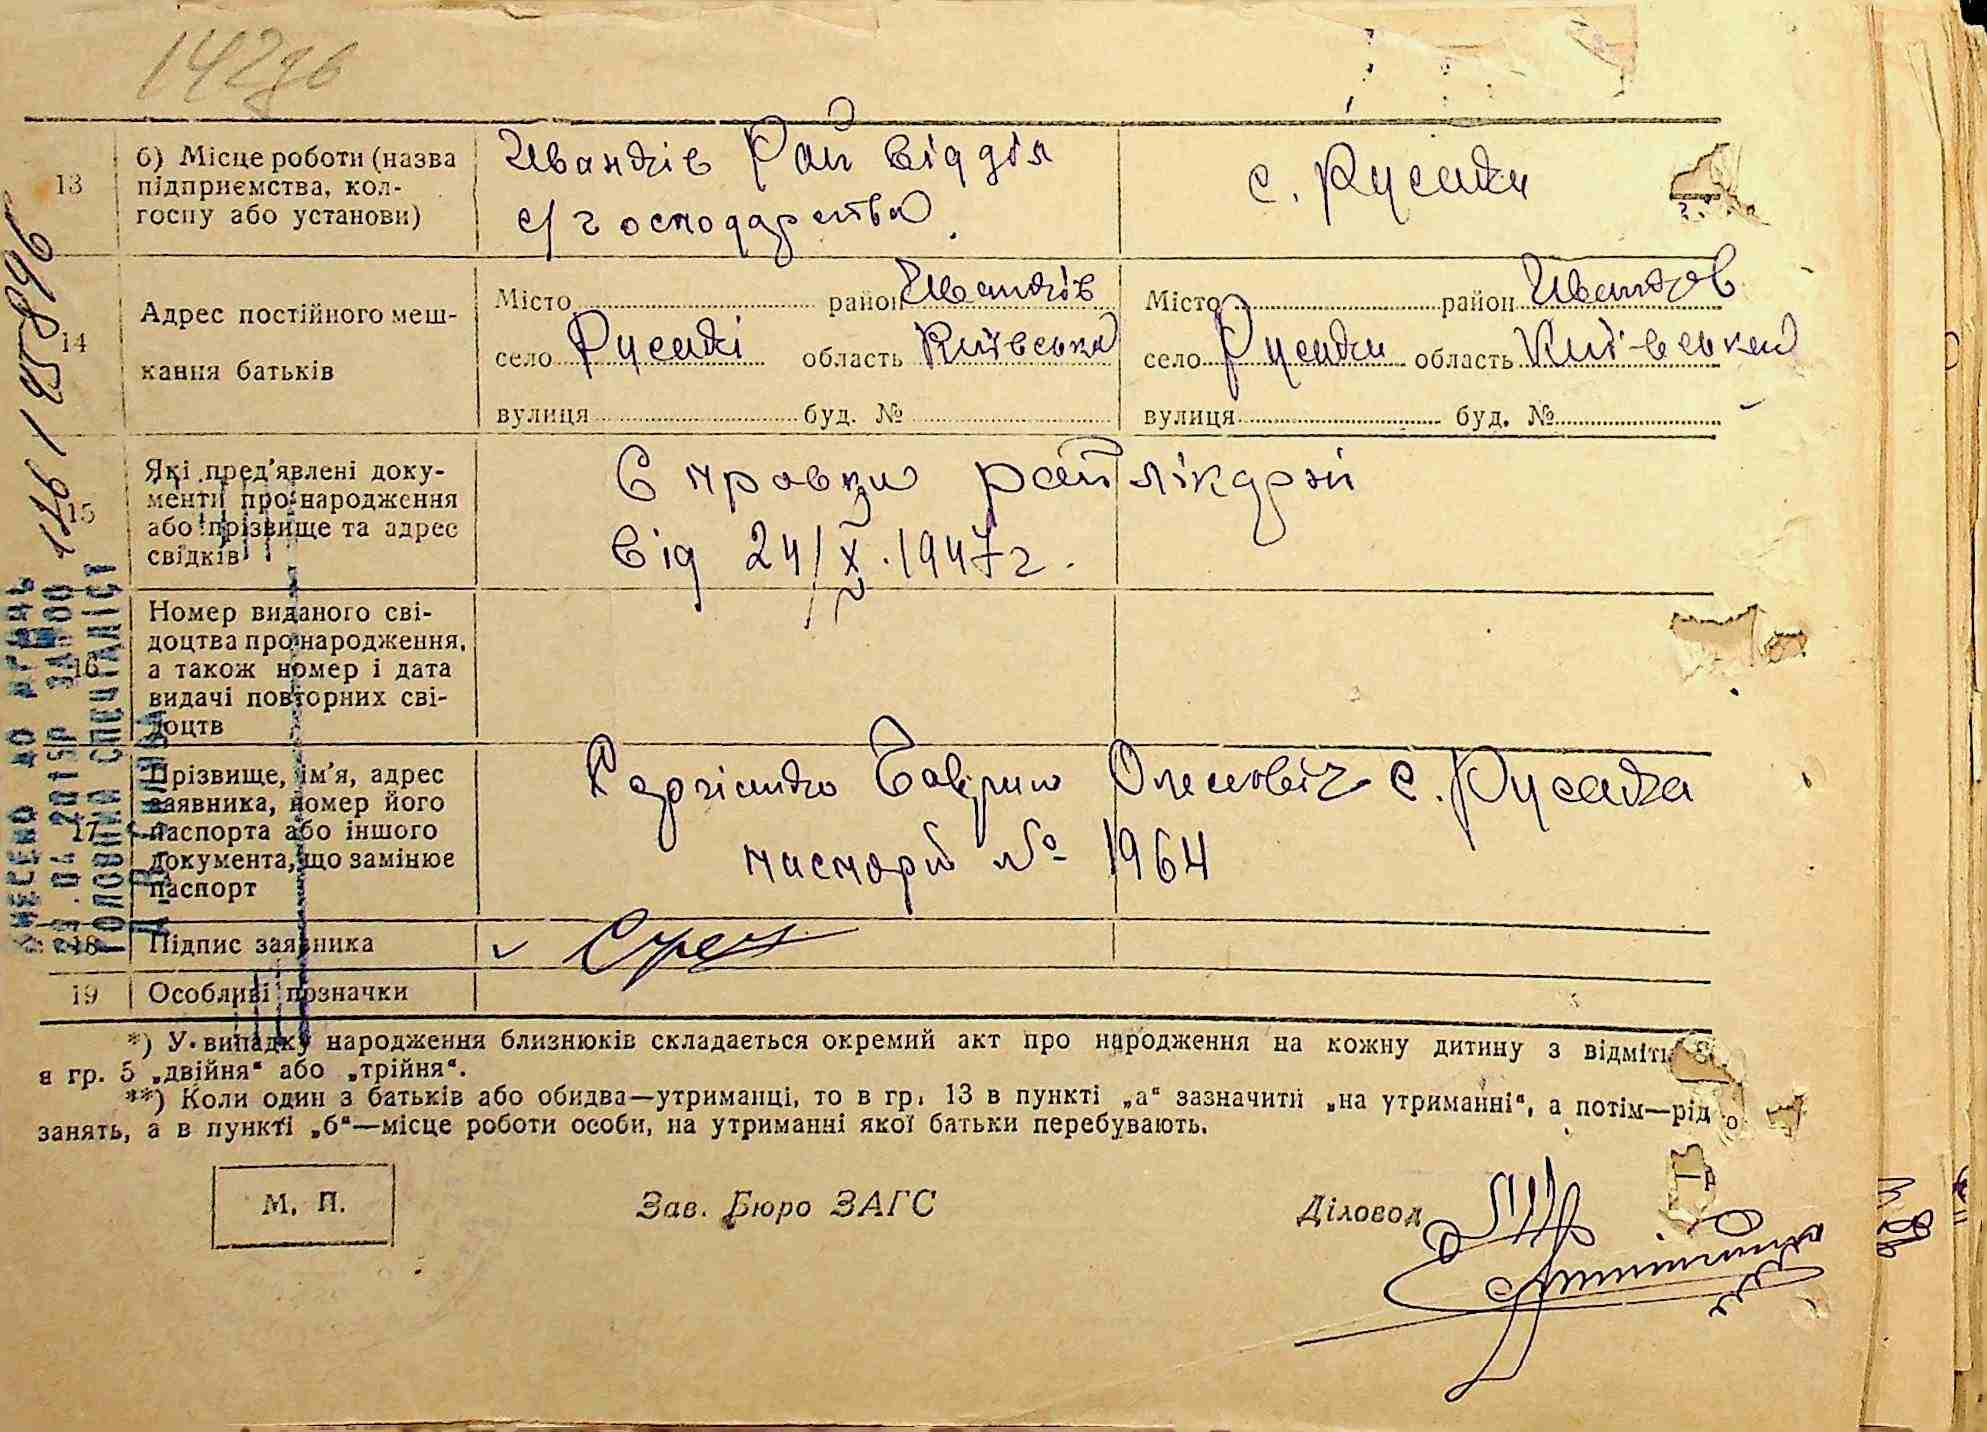 142зв
13
б) Місце роботи (назва
підприємства, кол-
госпу або установи)
Иванків Рай відділ
с/господарства
с. Русаки
14
Адрес постійного меш-
кання батьків
Місто район Иванків
село Русакі область Київська
вулиця буд. №
Місто район Иванков
село Русаки область Київська
вулиця буд. №
15
Які пред'явлені доку-
менти про народження
або прізвище та адрес
свідків
Справки райлікарні
від 24/X.1947г.
16
Номер виданого сві-
доцтва про народження,
а також номер і дата
видачі повторних сві-
доцтв
17
Прізвище, ім'я, адрес
заявника, номер його
паспорта або іншого
документа, що замінює
паспорт
с. Русака
паспорт № 1964
18
Підпис заявника
19
Особливі позначки
*) У випадку народження близнюків складається окремий акт про народження на кожну дитину з
в гр. 5 „двійня“ або „трійня“.
**) Коли один з батьків або обидва—утриманці, то в гр. 13 в пункті „а“ зазначити „на утриманні“, а потім—рід
занять, а в пункті „б“—місце роботи особи, на утриманні якої батьки перебувають.
М. П.
Зав. Бюро ЗАГС
Діловод
ВНЕСЕНО ДО
ГОЛОВНИЙ СПЕЦІАЛІСТ